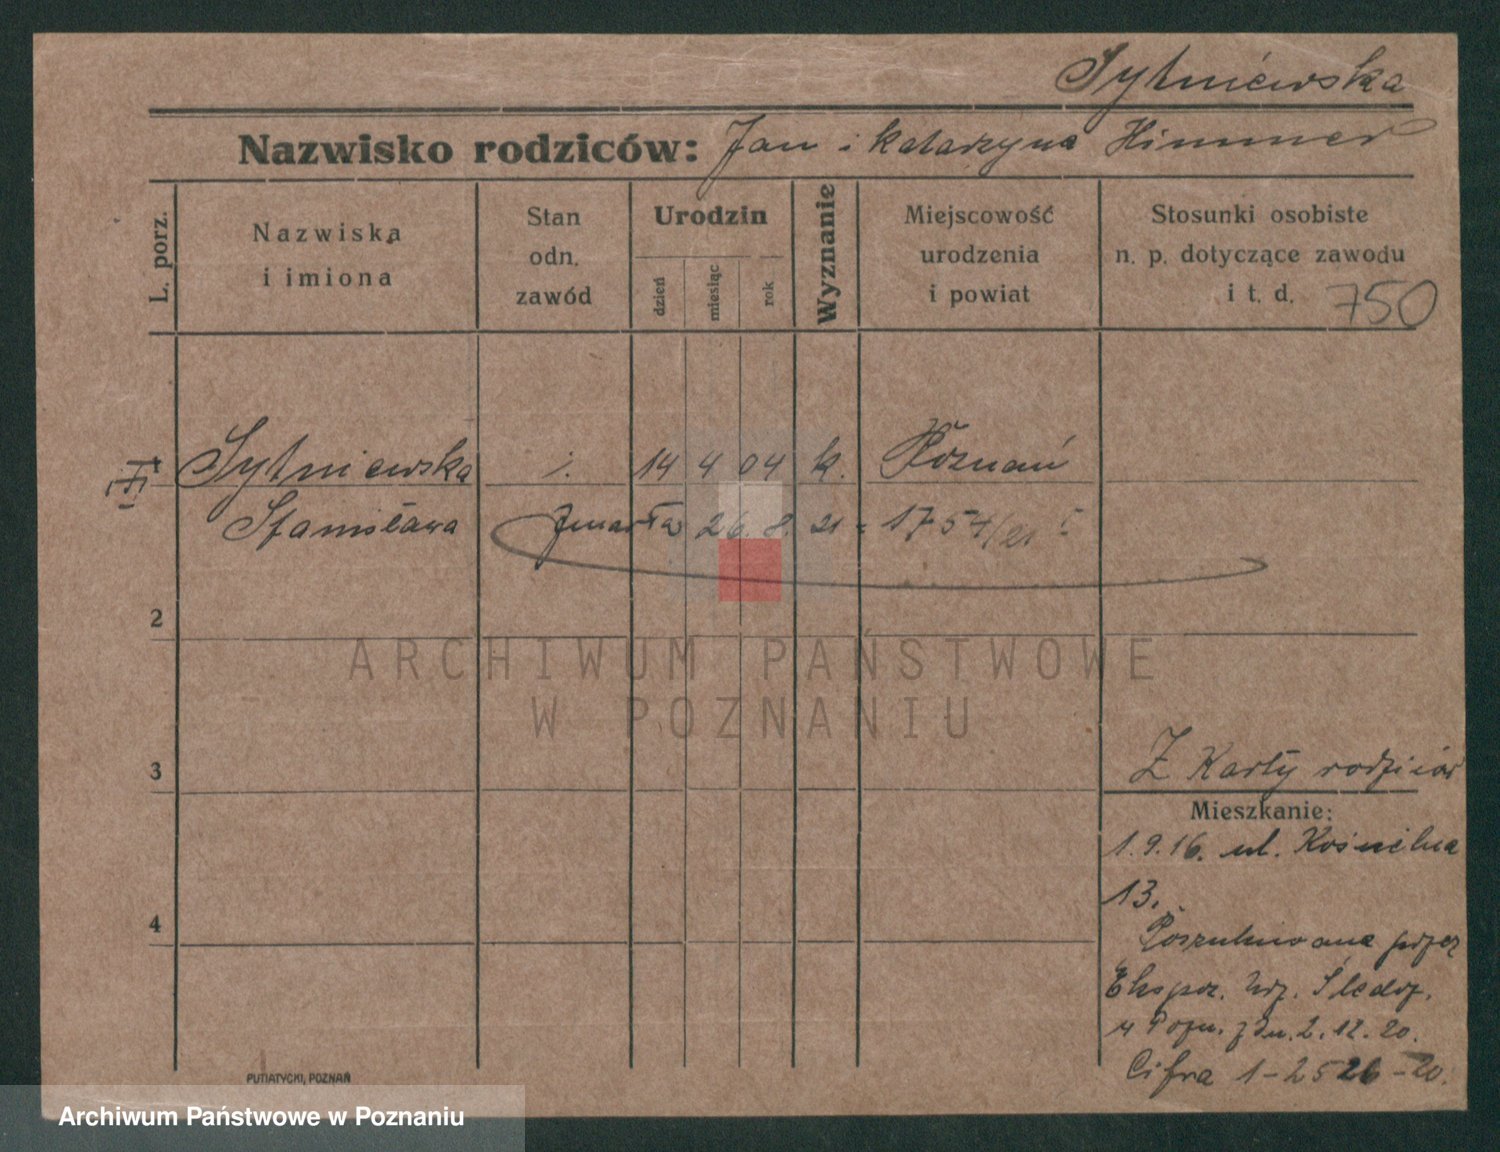 Sytniewska
Nazwisko rodziców: Jan i Katarzyna Himmer
L. porz.
Nazwiska
i imiona
Stan
odn.
zawód
Urodzin
dzień
miesiąc
rok
Wyznanie
Miejscowość
urodzenia
i powiat
Stosunki osobiste
n. p. dotyczące zawodu
i t. d.
750
1 Sytniewska i. 14 4 04 k. Poznań
Stanisława Zmarła 26. 8. 21 = 1754/21
2
ARCHIWUM PAŃSTWOWE
W POZNANIU
3
Z Karty rodziców
Mieszkanie:
1.9.16. ul.
13.
4
Poszukiwana przez
Ekspoz. Urz. Śledz.
w Pozn. z dn. 2.12.20.
Cifra 1-2526-20.
PUTIATYCKI, POZNAŃ
Archiwum Państwowe w Poznaniu